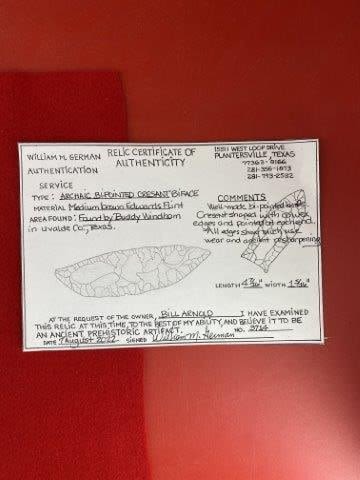 WILLIAM M. GERMAN
AUTHENTICATION
SERVICE
RELIC CERTIFICATE OF
AUTHENTICITY
15511 WEST LOOP DRIVE
PLANTERSVILLE, TEXAS
77363-9166
281-356-1873
281-793-2532
TYPE: ARCHAIC BIPOINTED CRESANT BIFACE
MATERIAL Medium brown Edwards Flint
AREA FOUND: Found by Buddy Windhom
in Uvalde Co., Texas.
COMMENTS
Well made bi-pointed
Cresent shaped with
edges and pointed at each end.
All edges show much use
wear and ancient resharpening
LENGTH 4 WIDTH 1
AT THE REQUEST OF THE OWNER, BILL ARNOLD I HAVE EXAMINED
THIS RELIC AT THIS TIME, TO THE BEST OF MY ABILITY, AND BELIEVE IT TO BE
AN ANCIENT PREHISTORIC ARTIFACT. NO. 3714
DATE 7 August 2022 SIGNED William M. German